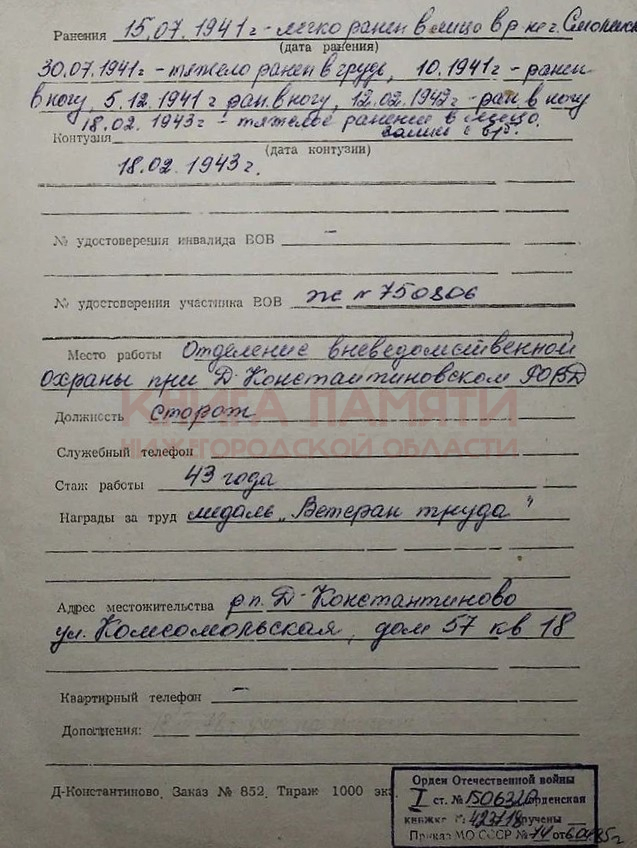 Ранения 15.07.1941 г - легко ранен в лицо в р-не г. Смоленск
(дата ранения)
30.07.1941 г - тяжело ранен в грудь, 10.1941 г - ранен
в ногу, 5.12.1941 г ран. в ногу, 12.02.1942 г - ран. в ногу
18.02.1943 г - тяжелое ранение в лицо.
Контузия
(дата контузии)
18.02.1943 г.
№ удостоверения инвалида ВОВ –
№ удостоверения участника ВОВ Ж № 750806
Место работы Отделение вневедомственной
охраны при Д-Константиновском РОВД
КНИГА ПАМЯТИ
Должность сторож
НИЖЕГОРОДСКОЙ ОБЛАСТИ
Служебный телефон
Стаж работы 43 года
Награды за труд медаль „Ветеран труда"
Адрес местожительства р.п. Д-Константиново
ул. Комсомольская, дом 57 кв 18
Квартирный телефон –
Дополнения:
Д-Константиново. Заказ № 852. Тираж 1000 экз.
Орден Отечественной войны
I ст. № орденская
книжка № вручены
Приказ МО СССР № 74 от